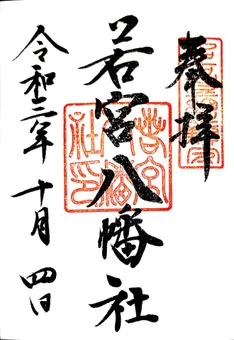 奉拝
若宮八幡社
令和三年十月四日
若宮八幡社印